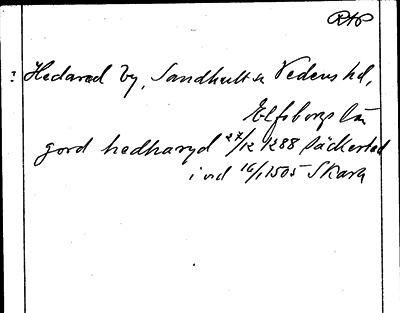 RAP
? Hedared by, Sandhult sn Vedens hd,
Elfsborgs län
gord hedharyd 27/12 1288 Säckestad
i vd 16/1 1505 Skara